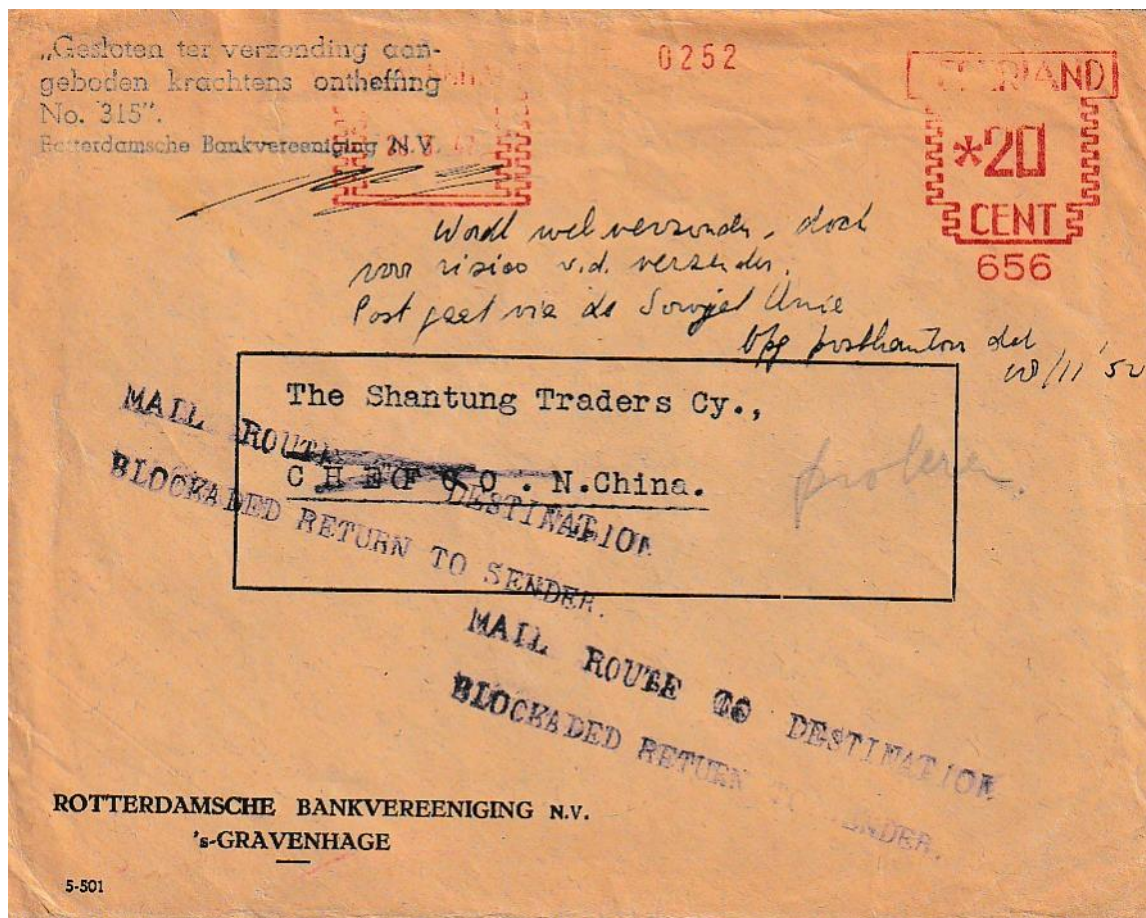 „Gesloten ter verzending aan-
geboden krachtens ontheffing
No. 315”.
Rotterdamsche Bankvereeniging N.V.
0252
*20
CENT
656
Wordt wel verzonden, doch
voor risico v.d. verzender.
Post gaat via de Sowjet Unie
postkantoor
The Shantung Traders Cy.,
CHEFOO. N.China.
proberen.
MAIL ROUTE DESTINATION
BLOCKADED RETURN TO SENDER.
MAIL ROUTE TO DESTINATION
BLOCKADED RETURN TO SENDER.
ROTTERDAMSCHE BANKVEREENIGING N.V.
's-GRAVENHAGE
5-501